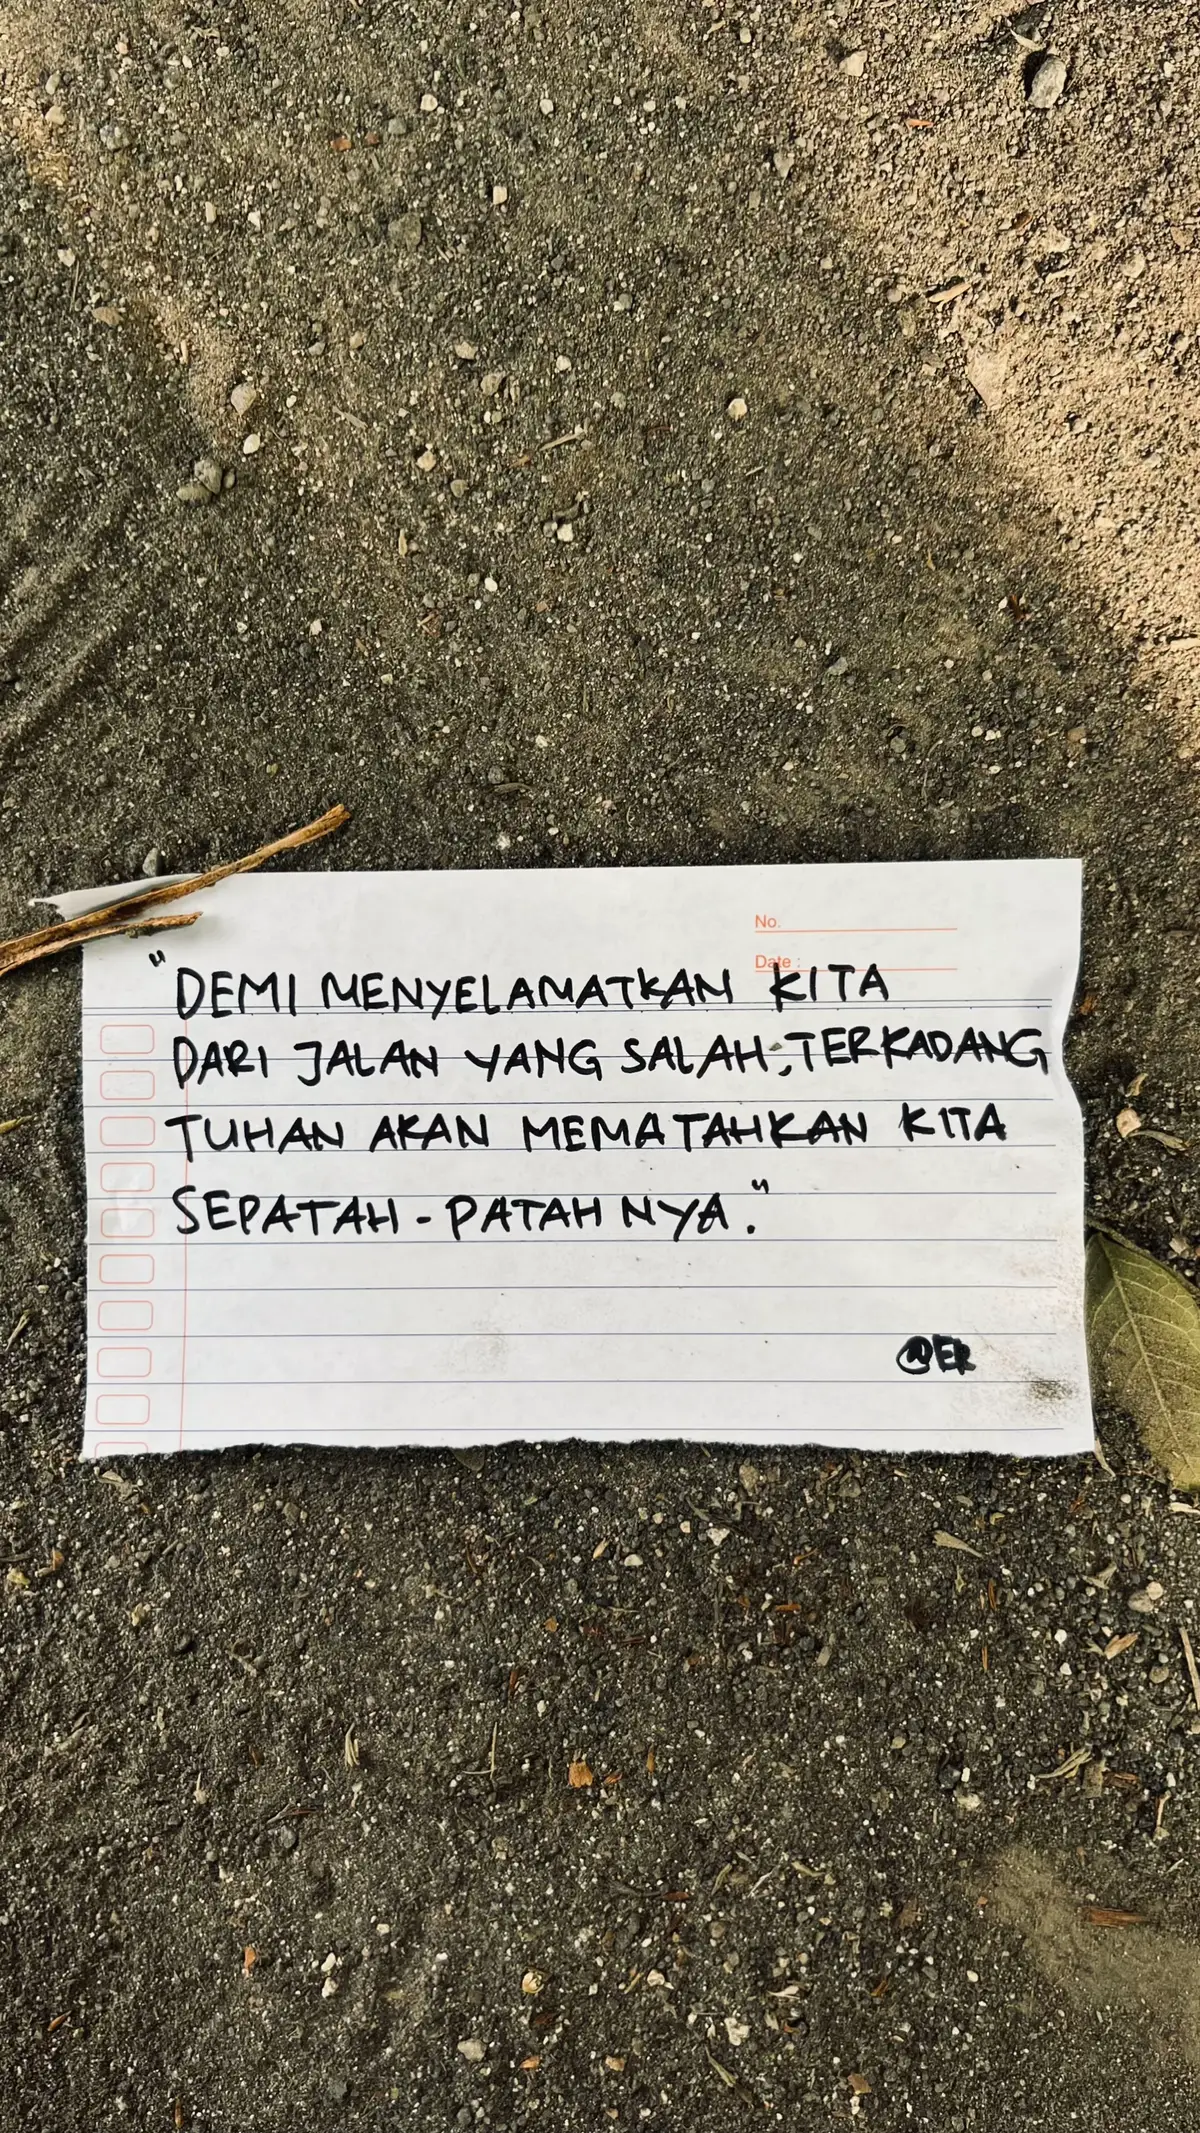 No.
Date :
"DEMI MENYELAMATKAN KITA
DARI JALAN YANG SALAH, TERKADANG
TUHAN AKAN MEMATAHKAN KITA
SEPATAH-PATAHNYA."
@ER